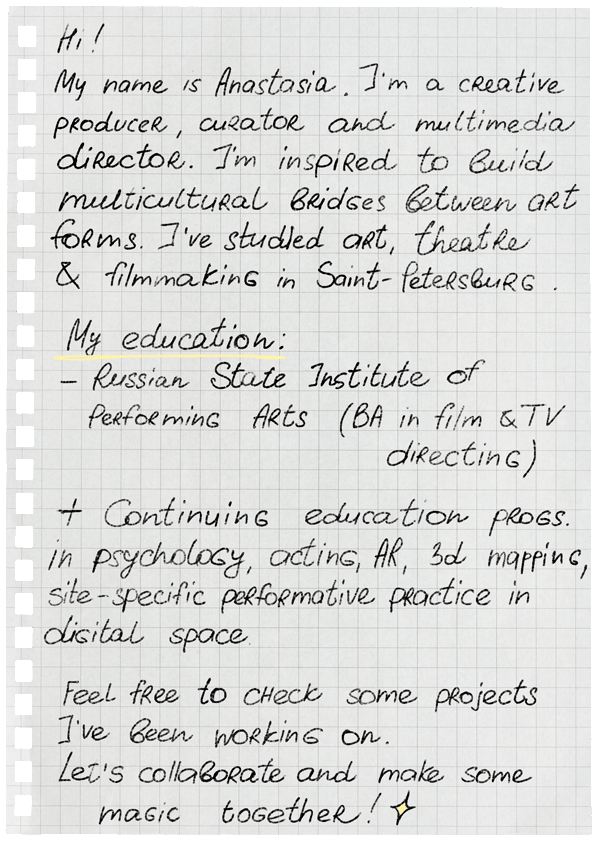 Hi!
My name is Anastasia. I'm a creative
producer, curator and multimedia
director. I'm inspired to build
multicultural bridges between art
forms. I've studied art, theatre
& filmmaking in Saint-Petersburg.
My education:
- Russian State Institute of
Performing Arts (BA in film & TV
directing)
+ Continuing education progs.
in psychology, acting, AR, 3d mapping,
site-specific performative practice in
digital space
Feel free to check some projects
I've been working on.
Let's collaborate and make some
magic together!